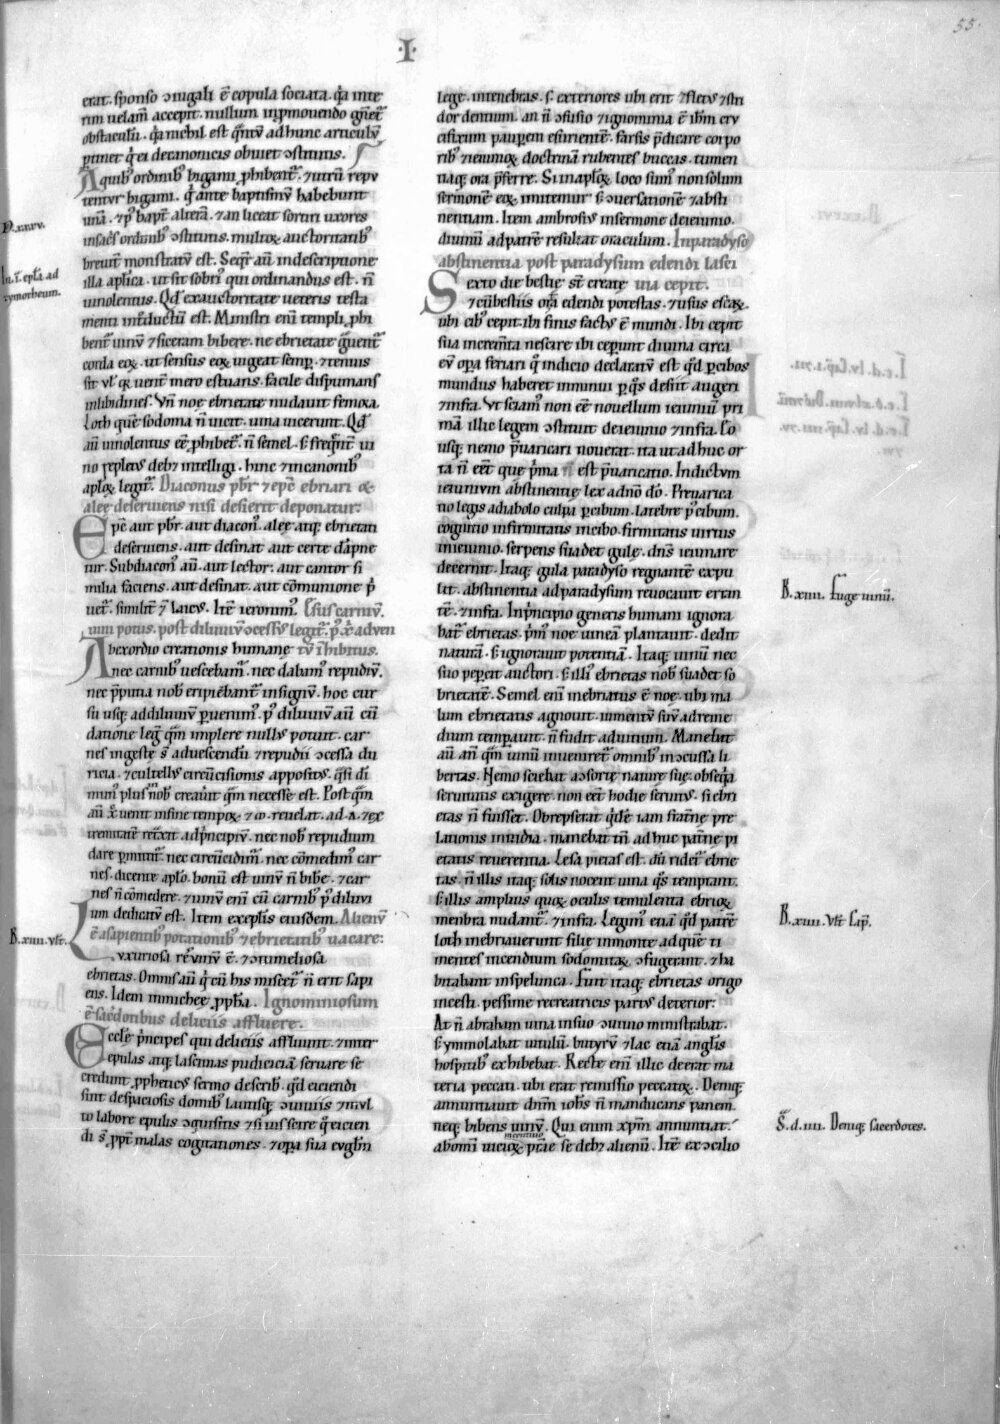 55.
·I·
erat. sponso ↄiugali ē copula sociata. q̇a inte
rim uelam̄ accepit. nullum in ꝓmouendo gn̄et᷑
obstaculū. q̇a nichil est q̄ntū ad hunc articulū
ꝑtinet q̇ ei de canonicis obuiet ↄstitutis.
A quib᷒ ordinib᷒ bigami ꝓhibent᷑. ⁊ utrū repu
tentur bigami. q̇ ante baptismū habebunt
unā. ⁊ p᷒ bapt̄ alterā. ⁊ an liceat sortiri uxores
in sac̄s ordinib᷒ ↄstitutis. multoꝝ auctoritatib᷒
breuit̄ monstratū est. Seq̇t᷑ aū in descriptione
illa apl̄ica. ut sit sobri᷒ qui ordinandus est. n̄
uinolentus. Qd̄ ex auctoritate ueteris testa
menti int᷑ductū est. Ministri eni̅ templi ꝓhi
bent᷑ uinū ⁊ siceram bibere. ne ebrietate g̾uent᷑
corda eoꝝ. ut sensus eoꝝ uigeat semꝑ. ⁊ tenuis
sit ul̄ q̇ uent̄ mero estuans. facile dispumans
in libidines. Vn̄ noe ebrietate nudauit femora.
Loth quē sodoma n̄ uicit. uina uicerunt. Qd̄
aū uinolentus eē ꝓhibet᷑. n̄ semel. s̄ freq̄nt̄ ui
no repletus deb& intelligi. hinc ⁊ in canonib᷒
apl̄oꝝ legit᷑. Diaconus pbr̄ ⁊ ep̄c ebriari &
aleę deseruiens nisi desierit deponatur:
Ep̄c aut pbr̄. aut diacon᷒. aleę atq; ebrietati
deseruiens. aut desinat aut certe dāpne
tur. Subdiacon᷒ aū. aut lector. aut cantor si
milia faciens. aut desinat. aut cōmunione ṗ
uet᷑. similit̄ ⁊ laicus. Itē ieronim᷒. Esus carniū.
uini potus. post diluuiū ↄcessus legit᷑. p᷒ x̄p̄i aduen
Ab exordio creationis humanę tū inhibitus.
nec carnib᷒ uescebam᷑. nec dabam᷑ repudiū.
nec p̄putia nob̄ eripiebant᷑ in signū. hoc cur
su usq; ad diluuiū ꝑuenim᷒. p᷒ diluuiū aū cū
datione leg̾ q̄m implere nullus potuit. car
nes ingestę s̄ ad uescendū. ⁊ repudii ↄcessa du
ricia. ⁊ cultellus circūcisionis appositus. q̄si di
mun᷒ plus in nob̄ creauit q̄m necesse est. Postq̄m
aū x̄p̄c uenit in fine tempoꝝ ⁊ ω. reuelat. ad .A. ⁊ ex
tremitatē ret᷑xit ad ṗncipiū. nec nob̄ repudium
dare ꝑmittit᷑. nec circūcidim᷑. nec cōmedim᷒ car
nes. dicente apl̄o. bonū est uinū n̄ bibe̾. ⁊ car
nes n̄ cōmedere. ⁊ uinū eni̅ cū carnib᷒ p᷒ diluui
um dedicatū est. Item ex epl̄is eiusdem. Alienū
ē a sapientib᷒ potationib᷒ ⁊ ebrietatib᷒ uacare:
Luxuriosa res uinū ē. ⁊ ↄtumeliosa
ebrietas. Omnis aū q̇ cū his miscet᷑ n̄ erit sapi
ens. Idem in micheę ꝓph̄a. Ignominiosum
ē sac̄dotibus deliciis affluere.
Eccl̄ę ṗncipes qui deliciis affluunt. ⁊ inter
epulas atq; lasciuias pudiciciā seruare se
credunt ꝓpheticus sermo describ̄. qd̄ eiciendi
sint de spaciosis domib᷒ lautisq; ↄuiuiis ⁊ mul
to labore epulis ↄquisitis ⁊ si uis scire q̇ eicien
di s̄. ꝓpt̄ malas cogitationes. ⁊ oꝑa sua euglm̄
lege. in tenebras. s̄. exteriores ubi erit ⁊ fletus ⁊ stri
dor dentium. an n̄ ↄfusio ⁊ ignominia ē ih̄m cru
cifixum pauꝑem esurientē. farsis p̄dicare corpo
rib᷒ ⁊ ieiunioꝝ doctrinā rubentes buccas. tumen
tiaq; ora p̄ferre. Si in apl̄oꝝ loco sum᷒ non solum
sermonē eoꝝ imitemur s̄ ↄuersationē ⁊ absti
nentiam. Item ambrosius in sermone de ieiunio.
diuinū ad patrē resultat oraculum. In paradyso
abstinentia post paradysum edendi lasci
Sexto die bestię st̄ creatę uia cepit.
⁊ cū bestiis orta edendi potestas. ⁊ usus escaꝝ.
ubi cib᷒ cepit. ibi finis factus ē mundi. Ibi cepit
sua incremta nescire ibi ceperunt diuina circa
eū oꝑa feriari q̇ indicio declaratū est qd̄ ꝑ cibos
mundus haberet imminui ꝑ q̇s desiit augeri
⁊ infra. Vt sciam᷒ non eē nouellum ieiuniū pri
mā illic legem ↄstituit de ieiunio ⁊ infra. Eo
usq; nemo p̄uaricari nouerat. ita ut adhuc or
ta n̄ eēt quę ṗma est p̄uaricatio. Indictum
ieiunium abstinentię lex a dn̄o d̄o. Preuarica
tio legis a diabolo culpa ꝑ cibum. latebrę p᷒ cibum.
cognitio infirmitatis in cibo. firmitatis uirtus
in ieiunio. serpens suadet gulę. dn̄s ieiunare
decernit. Itaq; gula paradyso regnantē expu
lit. abstinentia ad paradysum reuocauit erran
tē. ⁊ infra. In ṗncipio generis humani ignora
bat᷑ ebrietas. ṗm᷒ noe uineā plantauit. dedit
naturā. s̄ ignorauit potentiā. Itaq; uinū nec
suo peꝑcit auctori. s̄ illi᷒ ebrietas nob̄ suadet so
brietatē. Semel eni̅ inebriatus ē noę. ubi ma
lum ebrietatis agnouit. in mentū suū ad reme
dium temꝑauit. n̄ fudit ad uitium. Manebat
aū an̄ q̄m uinū inueniret᷑ omnib᷒ inↄcussa li
bertas. Nemo sciebat a ↄsorte naturę suę. obseq̇a
seruitutis exigere. non eēt hodie seruitus. si ebri
etas n̄ fuisset. Obrepserat qdē iam fraternę pre
lationis inuidia. manebat tn̄ adhuc paternę pi
etatis reuerentia. Lesa pietas est. dū ridet᷑ ebrie
tas. n̄ illis itaq; solis nocent uina q̇s temptant.
s̄ illis amplius quoꝝ oculis temulenta ebrioꝝ
menbra nudant᷑. ⁊ infra. Legim᷒ etiā qd̄ patrē
loth inebriauerunt filię in monte ad quē ti
mentes incendium sodomitaꝝ ↄfugerant. ⁊ ha
bitabant in spelunca. Fuit itaq; ebrietas origo
incesti. pessime recreatricis partus deterior:
At n̄ abraham uina in suo ↄuiuio ministrabat.
s̄ ymmolabat uitulū. butyrū ⁊ lac etiā angl̄is
hospitib᷒ exhibebat. Recte eni̅ illic deerat ma
teria peccati. ubi erat remissio peccatoꝝ. Deniq;
annuntiauit dn̄m ioh̄s n̄ manducans panem.
neq; bibens uinū. Qui enim xp̄m annuntiat.
abomi uitioꝝ incentiuo prīe se deb& alienū. Itē ex ↄcilio
D. xxxv.
In .i. epl̄a ad
tymotheum.
B. xiiii. ult̄.
B. xiiii. Fuge uinū.
B. xiiii. ult̄ sap̄.
G. d. iiii. Deniq; sacerdotes.